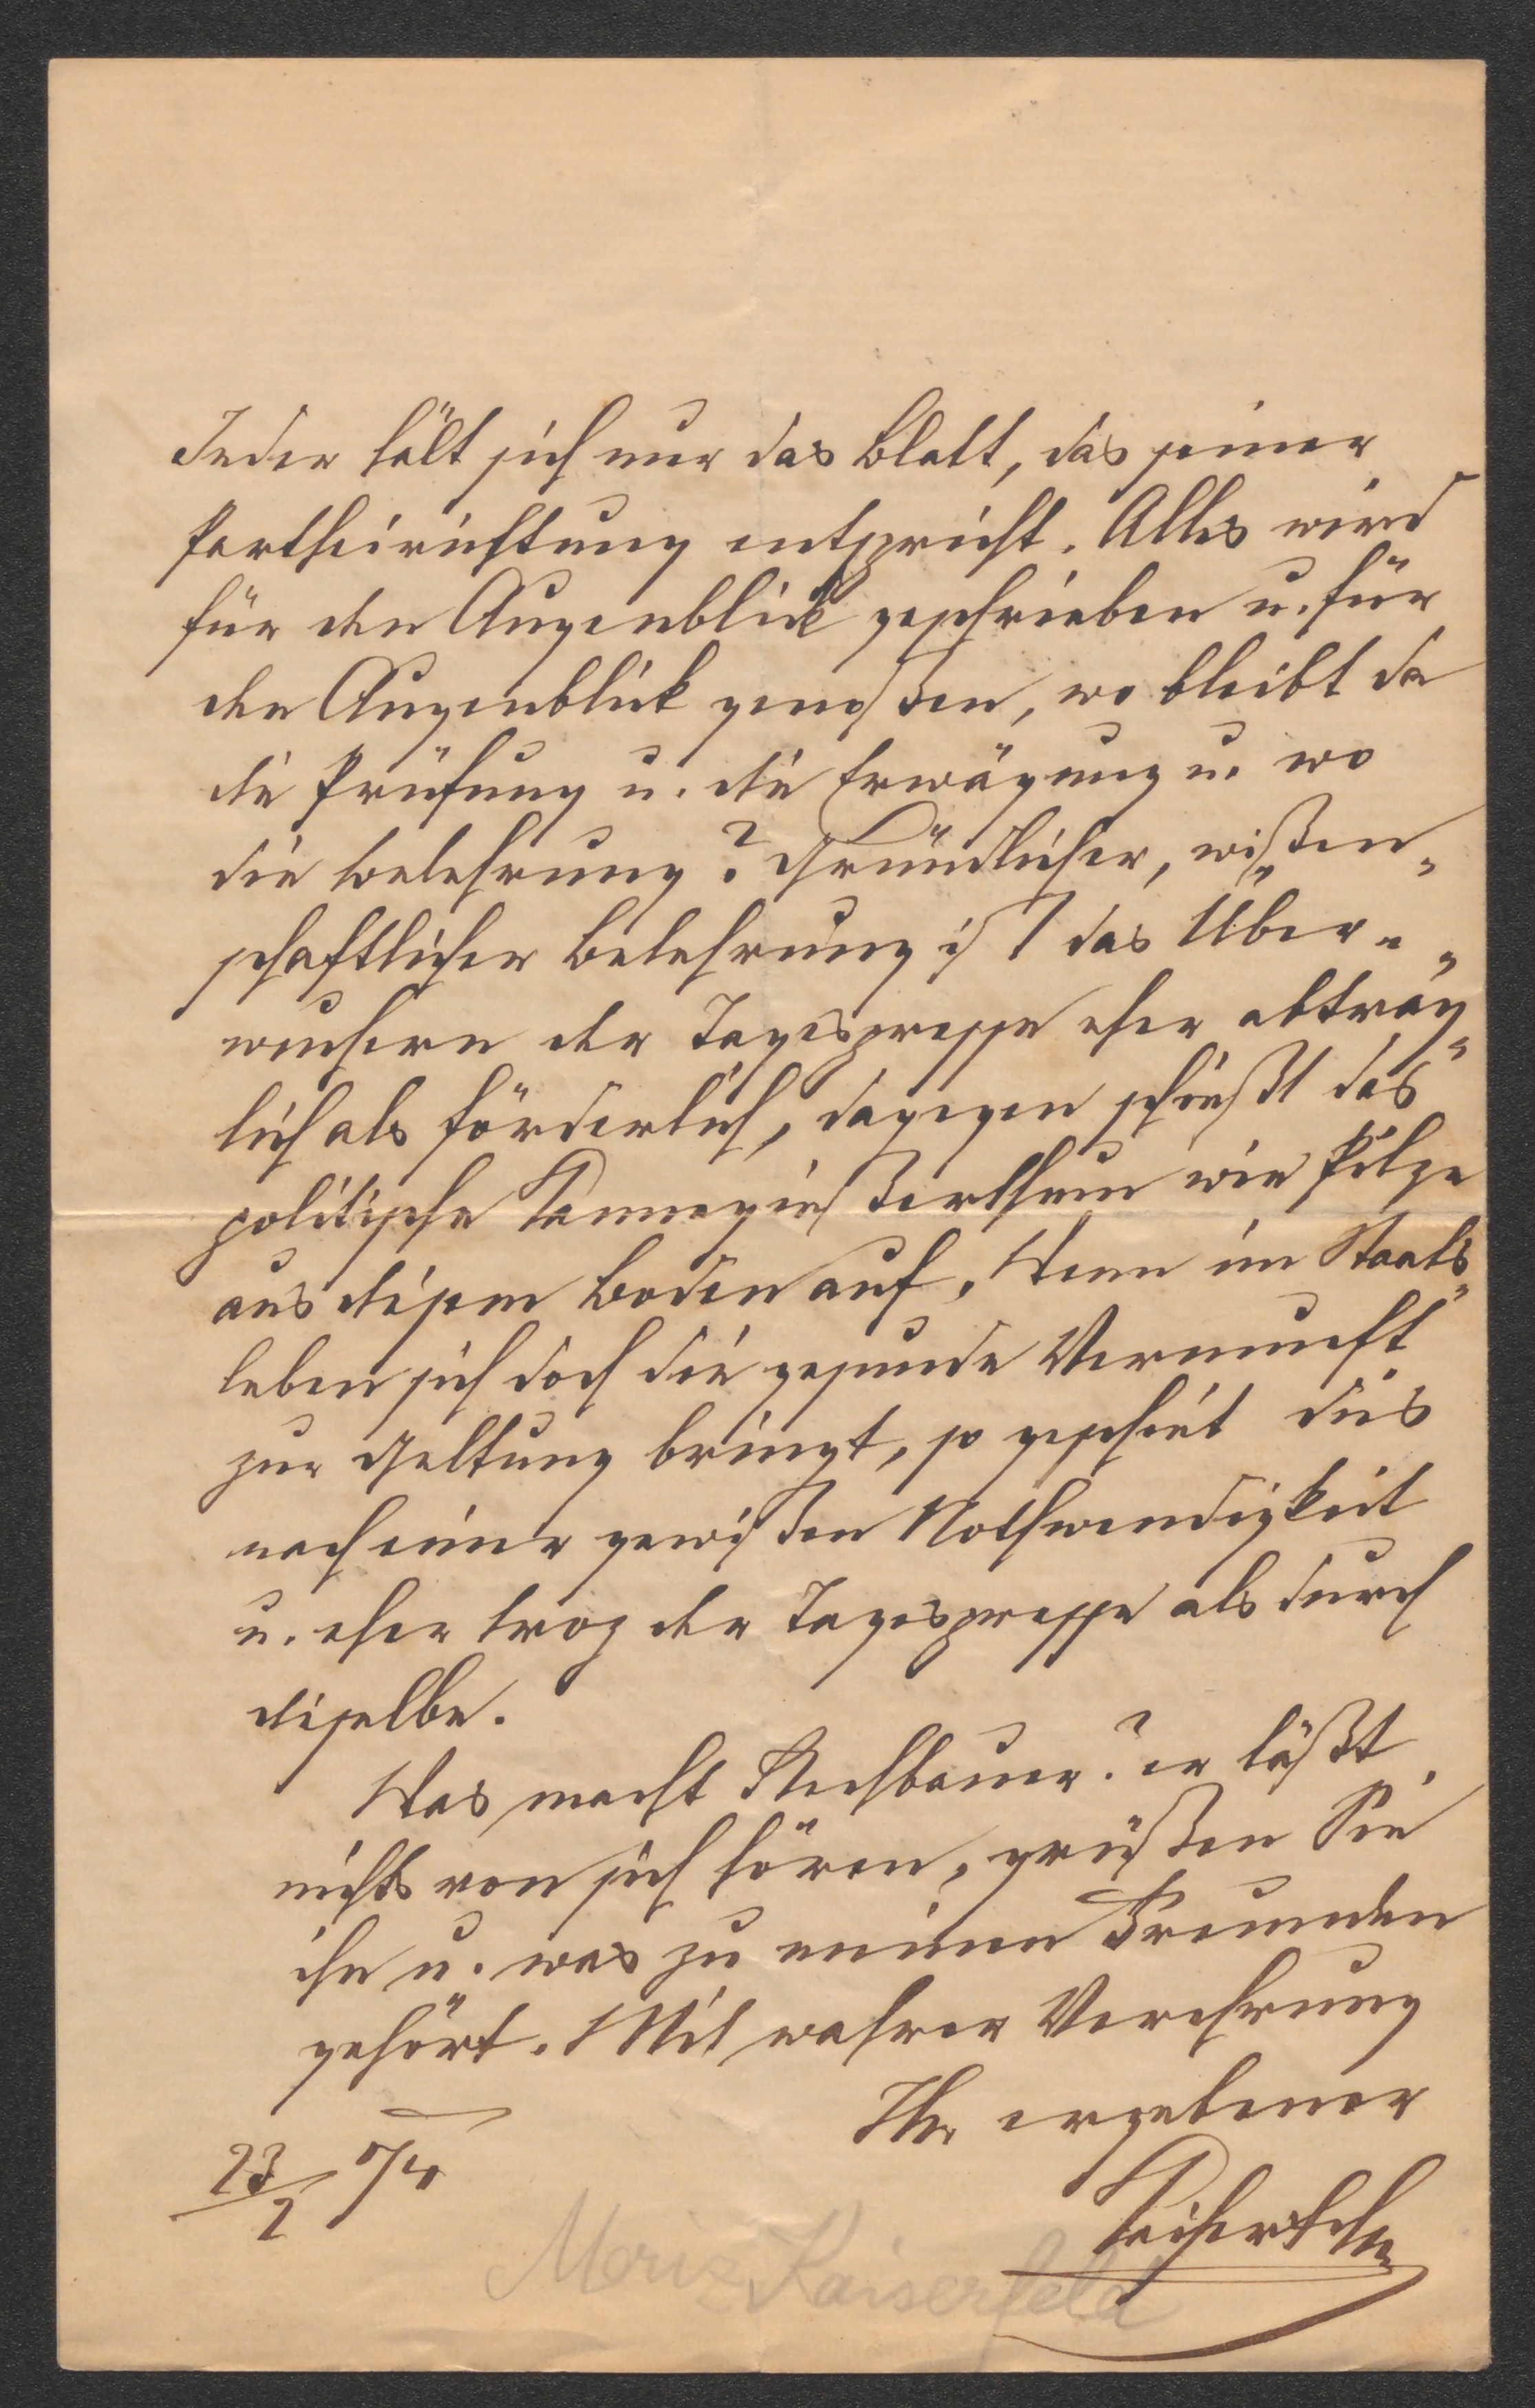 Jeder hält sich nur das Blatt, das seiner
Partheirichtung entspricht. Alles wird
für den Augenblick geschrieben u. für
den Augenblick genoßen, wo bleibt da
die Prüfung u. die Erwägung u. wo
die Belehrung? Gründlicher, wißen„
schaftlicher Belehrung ist das Über„
wuchern der Tagespresse eher abträg„
lich als förderlich, dagegen schießt das
politische Kannegießerthum wie Pilze
aus disem Boden auf. Wenn im Staats„
leben sich doch die gesunde Vernunft
zur Geltung bringt, so geschiet dies
nach einer gewißen Nothwendigkeit
u. eher troz der Tagespresse als durch
diselbe.
Was macht Rechbauer? er läßt
nichts von sich hören, grüßen Sie
ihn u. was zu meinen Freunden
gehört. Mit wahrer Verehrung
Ihr ergebener
23/2 74
Kaiserfeld
Moriz Kaiserfeld